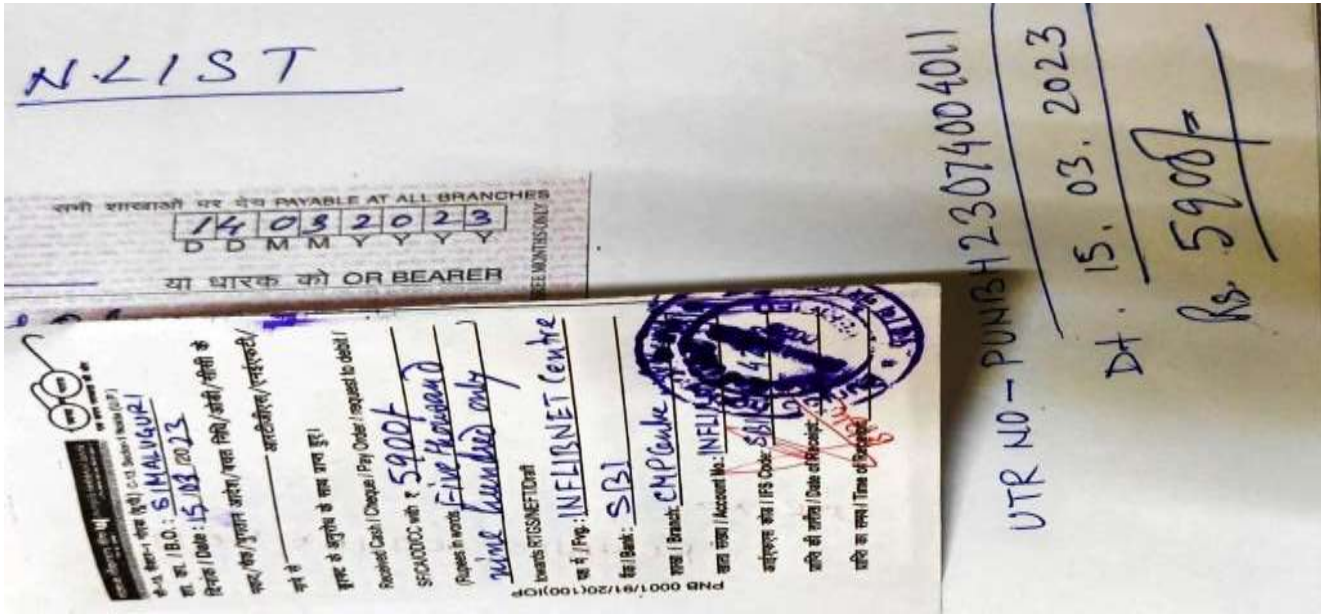 N-LIST
सभी शाखाओं पर देय PAYABLE AT ALL BRANCHES
14032023
D D M M Y Y Y Y
या धारक को OR BEARER
THREE MONTHS ONLY
शा. का. / B.O.: SIMALUGURI
दिनांक / Date: 15/03/2023
Received Cash / Cheque / Pay Order / request to debit /
SF/CA/OD/CC with ₹ 5900/-
(Rupees in words Five thousand
nine hundred only
towards RTGS/NEFT/Draft
पक्ष में / Fvg.: INFLIBNET Centre
बैंक / Bank: SBI
शाखा / Branch: CMP Centre
खाता संख्या / Account No.: INFLI
आईएफएस कोड / IFS Code: SBI
प्राप्ति की तारीख / Date of Receipt:
प्राप्ति का समय / Time of Receipt:
PNB 0001/91/20(100)IOP
UTR NO - PUNBH23074004011
Dt. 15. 03. 2023
Rs. 5900/=